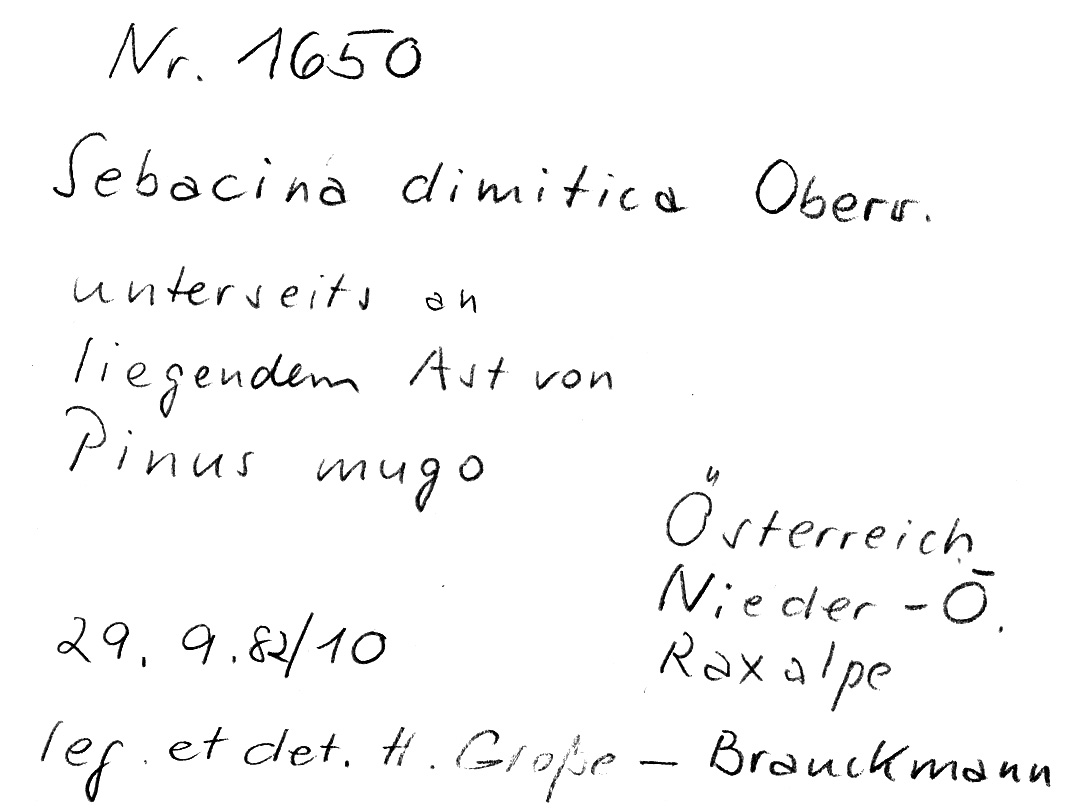 Nr. 1650
Sebacina dimitica Oberw.
unterseits an
liegendem Ast von
Pinus mugo
Österreich
Nieder-Ö.
Raxalpe
29. 9. 82/10
leg. et det. H. Große – Brauckmann